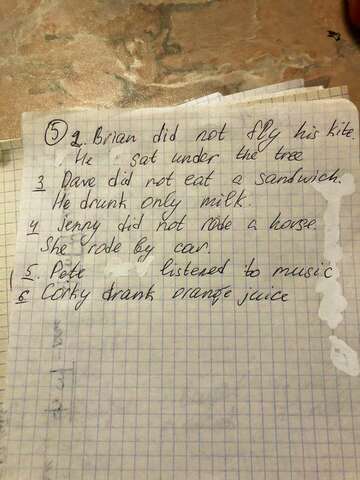 ⑤ 2. Brian did not fly his kite.
He sat under the tree
3 Dave did not eat a sandwich.
He drunk only milk.
4 Jenny did not rode a horse.
She rode by car.
5. Pete listened to music
6 Corky drank orange juice